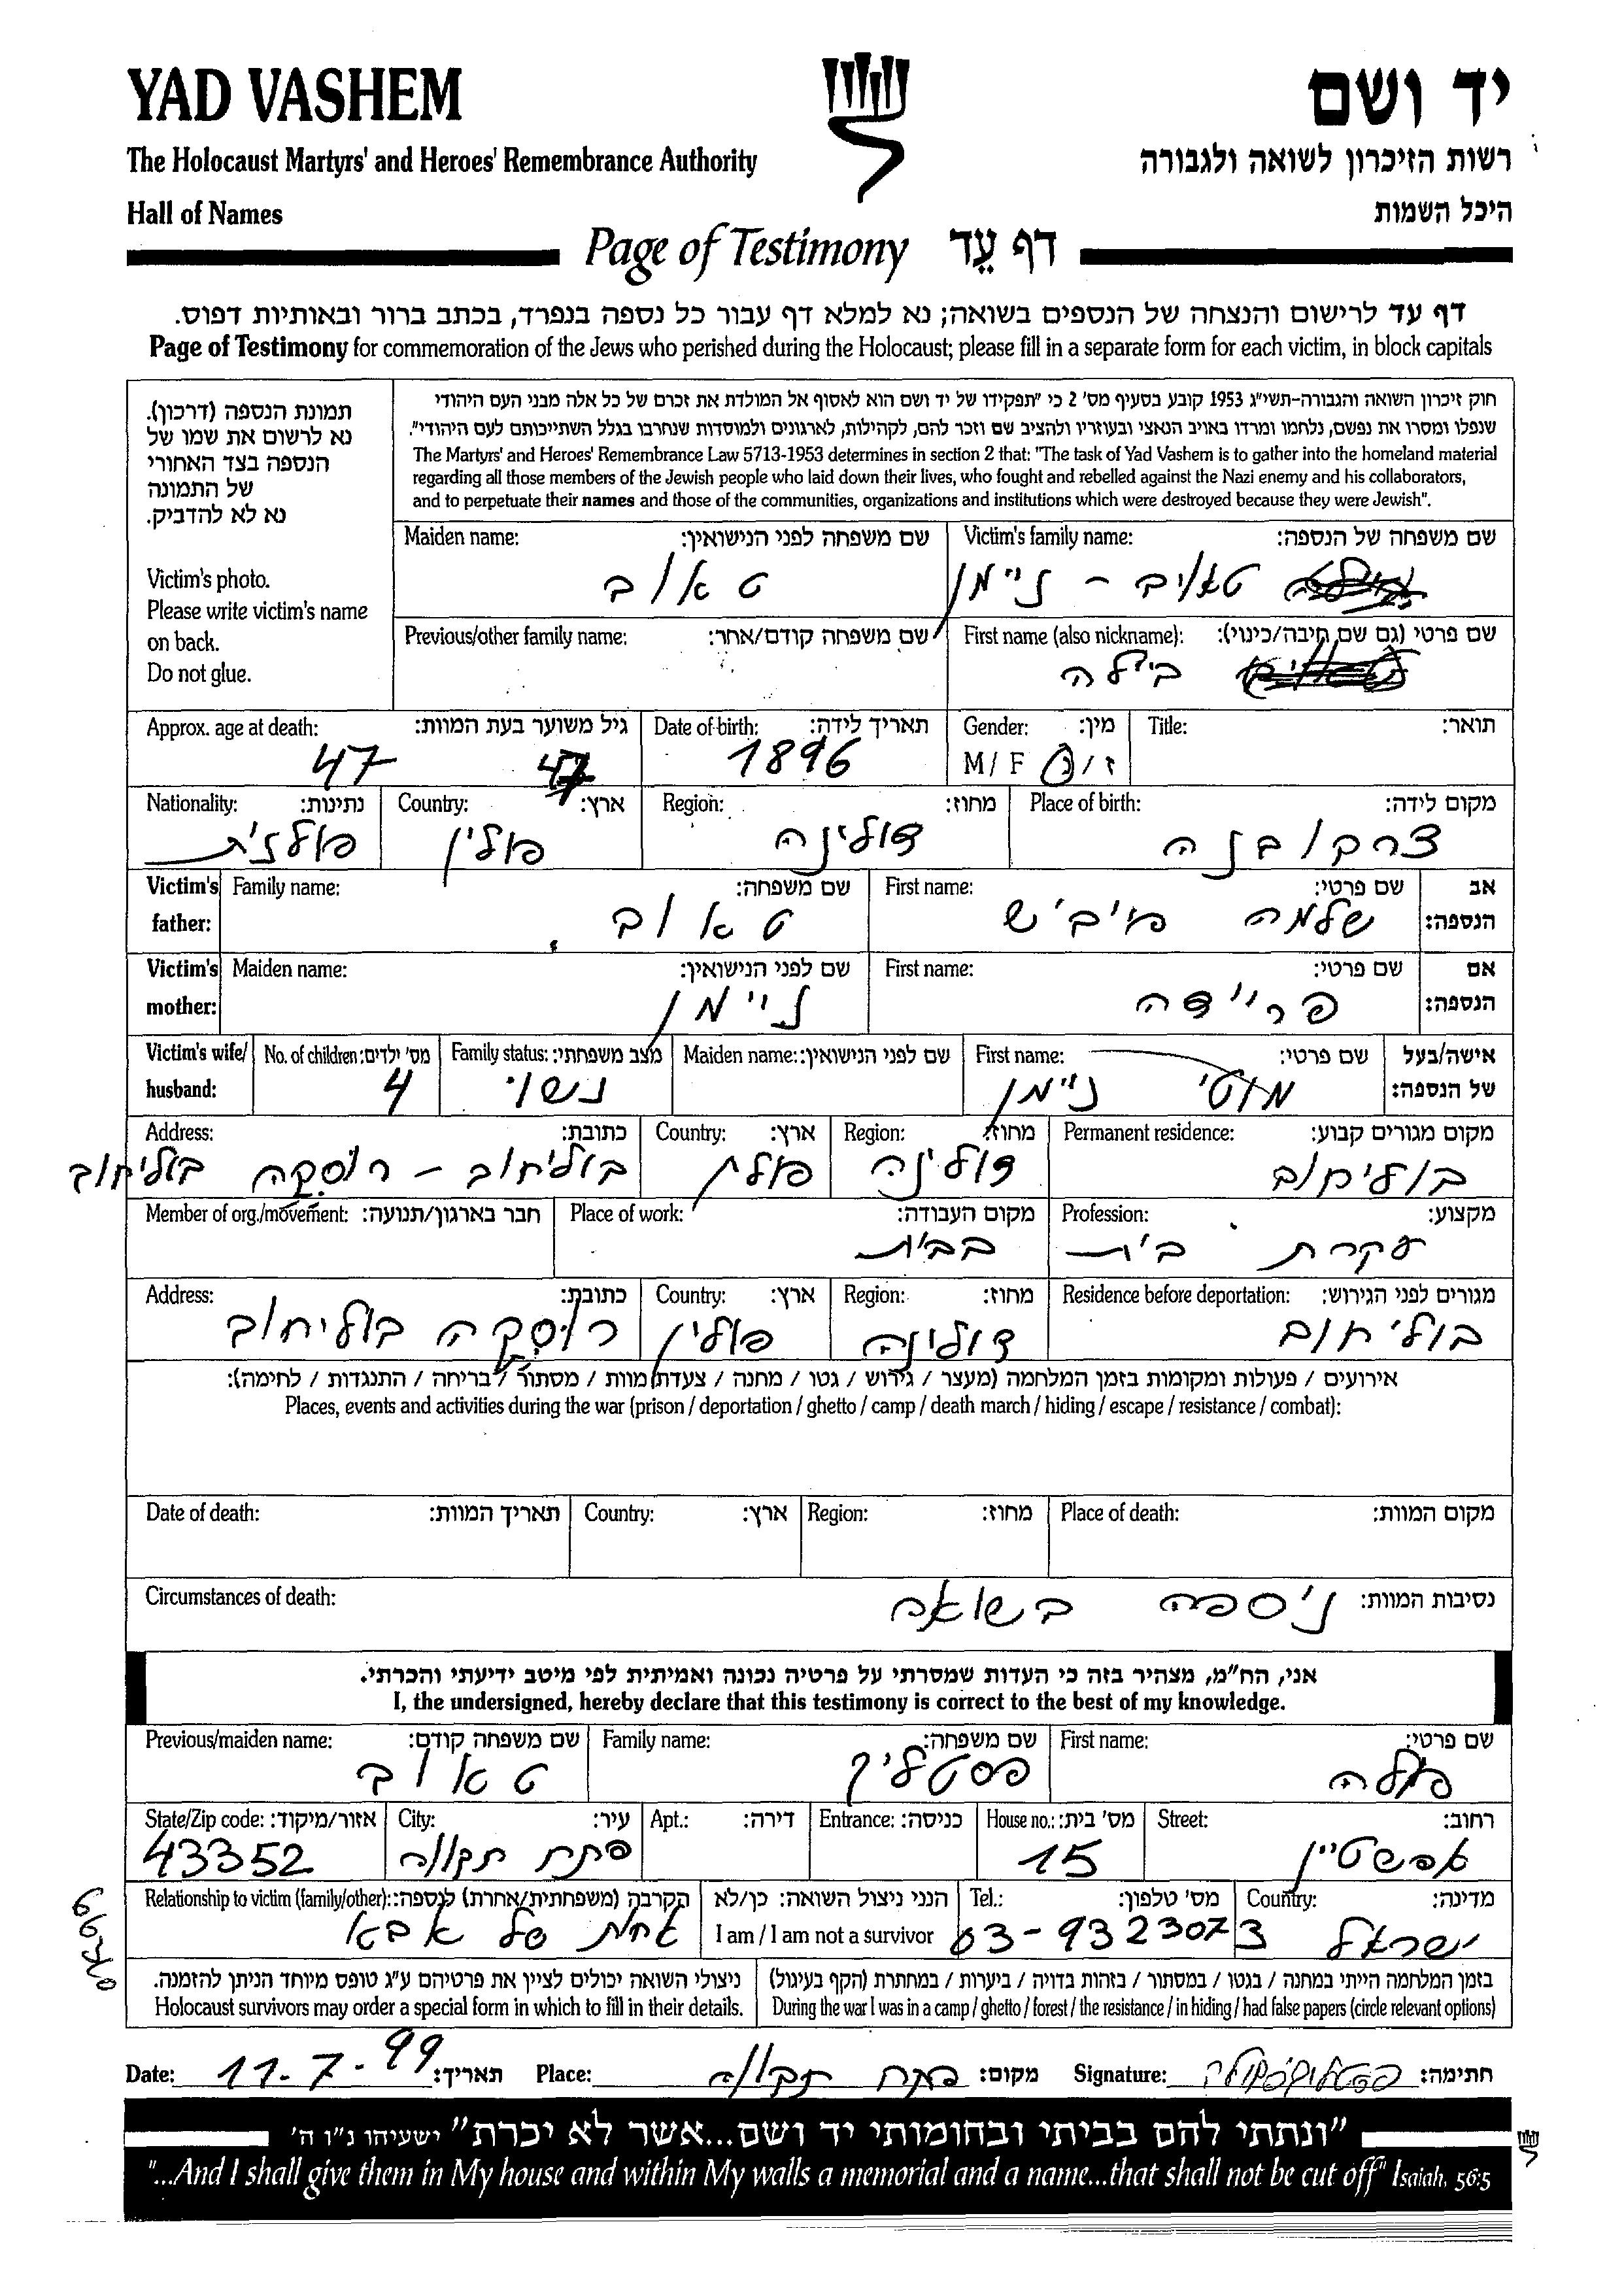 YAD VASHEM יד ושם
The Holocaust Martyrs' and Heroes' Remembrance Authority רשות הזיכרון לשואה ולגבורה
Hall of Names היכל השמות
Page of Testimony דף עֵד
דף עד לרישום והנצחה של הנספים בשואה; נא למלא דף עבור כל נספה בנפרד, בכתב ברור ובאותיות דפוס.
Page of Testimony for commemoration of the Jews who perished during the Holocaust; please fill in a separate form for each victim, in block capitals
תמונת הנספה (דרכון).
נא לרשום את שמו של
הנספה בצד האחורי
של התמונה
נא לא להדביק.
Victim's photo.
Please write victim's name
on back.
Do not glue.
חוק זיכרון השואה והגבורה-תשי"ג 1953 קובע בסעיף מס' 2 כי "תפקידו של יד ושם הוא לאסוף אל המולדת את זכרם של כל אלה מבני העם היהודי
שנפלו ומסרו את נפשם, נלחמו ומרדו באויב הנאצי ובעוזריו ולהציב שם וזכר להם, לקהילות, לארגונים ולמוסדות שנחרבו בגלל השתייכותם לעם היהודי".
The Martyrs' and Heroes' Remembrance Law 5713-1953 determines in section 2 that: "The task of Yad Vashem is to gather into the homeland material
regarding all those members of the Jewish people who laid down their lives, who fought and rebelled against the Nazi enemy and his collaborators,
and to perpetuate their names and those of the communities, organizations and institutions which were destroyed because they were Jewish".
Maiden name: שם משפחה לפני הנישואין: Victim's family name: שם משפחה של הנספה:
טאוב טאוב - ניימן
Previous/other family name: שם משפחה קודם/אחר: First name (also nickname): שם פרטי (גם שם חיבה/כינוי):
ביילה
Approx. age at death: גיל משוער בעת המוות: Date of birth: תאריך לידה: Gender: מין: Title: תואר:
47 47 1896 M / F ז / נ
Nationality: נתינות: Country: ארץ: Region: מחוז: Place of birth: מקום לידה:
פולנית פולין דולינה צרקובנה
Victim's father: Family name: שם משפחה: First name: שם פרטי: אב הנספה:
טאוב שלמה פייביש
Victim's mother: Maiden name: שם לפני הנישואין: First name: שם פרטי: אם הנספה:
ניימן פריידה
Victim's wife/ husband: No. of children: מס' ילדים: Family status: מצב משפחתי: Maiden name: שם לפני הנישואין: First name: שם פרטי: אישה/בעל של הנספה:
4 נשוי מוטי ניימן
Address: כתובת: Country: ארץ: Region: מחוז: Permanent residence: מקום מגורים קבוע:
בוליחוב - רוסקה בוליחוב פולין דולינה בוליחוב
Member of org./movement: חבר בארגון/תנועה: Place of work: מקום העבודה: Profession: מקצוע:
בבית עקרת בית
Address: כתובת: Country: ארץ: Region: מחוז: Residence before deportation: מגורים לפני הגירוש:
רוסקה בוליחוב פולין דולינה בוליחוב
אירועים / פעולות ומקומות בזמן המלחמה (מעצר / גירוש / גטו / מחנה / צעדת מוות / מסתור / בריחה / התנגדות / לחימה):
Places, events and activities during the war (prison / deportation / ghetto / camp / death march / hiding / escape / resistance / combat):
Date of death: תאריך המוות: Country: ארץ: Region: מחוז: Place of death: מקום המוות:
Circumstances of death: נסיבות המוות: ניספה בשואה
אני, הח"מ, מצהיר בזה כי העדות שמסרתי על פרטיה נכונה ואמיתית לפי מיטב ידיעתי והכרתי.
I, the undersigned, hereby declare that this testimony is correct to the best of my knowledge.
Previous/maiden name: שם משפחה קודם: Family name: שם משפחה: First name: שם פרטי:
טאוב פסטליק פולה
State/Zip code: אזור/מיקוד: City: עיר: Apt.: דירה: Entrance: כניסה: House no.: מס' בית: Street: רחוב:
43352 פתח תקווה 15 אפשטיין
Relationship to victim (family/other): הקרבה (משפחתית/אחרת) לנספה: הנני ניצול השואה: כן/לא Tel.: מס' טלפון: Country: מדינה:
אחות של אבא I am / I am not a survivor 03-9323073 ישראל
ניצולי השואה יכולים לציין את פרטיהם ע"ג טופס מיוחד הניתן להזמנה. בזמן המלחמה הייתי במחנה / בגטו / במסתור / בזהות בדויה / ביערות / במחתרת (הקף בעיגול)
Holocaust survivors may order a special form in which to fill in their details. During the war I was in a camp / ghetto / forest / the resistance / in hiding / had false papers (circle relevant options)
Date: 11-7-99 תאריך: Place: פתח תקווה מקום: Signature: חתימה:
"ונתתי להם בביתי ובחומותי יד ושם...אשר לא יכרת" ישעיהו נ"ו ה'
"...And I shall give them in My house and within My walls a memorial and a name...that shall not be cut off" Isaiah, 56:5